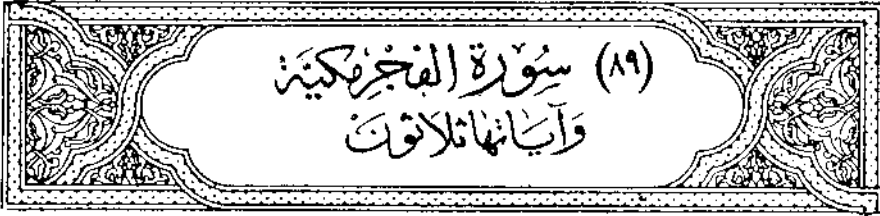 (٨٩) سُوْرَةُ الفَجْرِ مَكيَّة
وَآيَاتهَا ثلَاثونَ